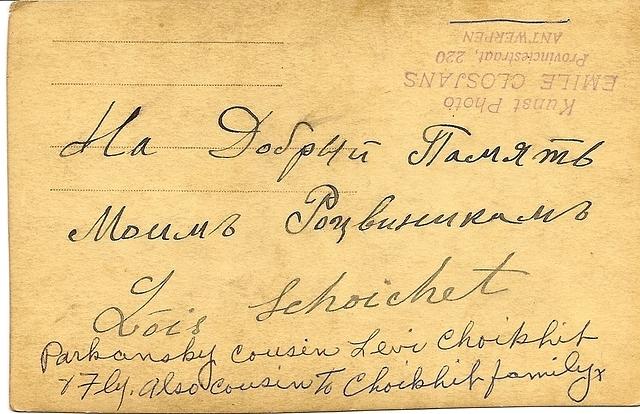 Kunst Photo
EMILE CLOSJANS
Provinciestraat, 220
ANTWERPEN
На Добрий Память
Моимъ Роцвиникамъ
Lois Schoichet
Parkansky cousin Levi Choikhit
& Fly. Also cousin to Choikhit family